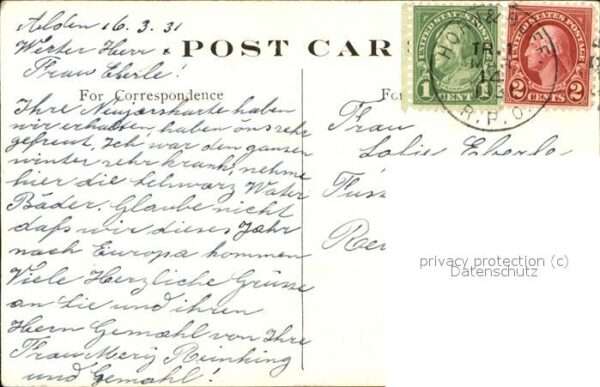 Alden 16.3.31
Werter Herr &
Frau Eberle!
POST CAR
For Correspondence
Ihre Neujarskarte haben
wir erhalten, haben öns sehr
gefreut, Ich war den gansen
winter sehr krank, nehme
hier die Schwarz Water
Bäder. Glaube nicht
daß wir dieses Jahr
nach Europa kommen
Viele Herzliche Grüsse
an Sie und ihren
Herrn Gemahl von Ihre
Frau Merij Reinking
und Gemahl!
For
UNITED STATES POSTAGE
1 CENT 1
UNITED STATES POSTAGE
2 CENTS 2
TR.
R.P.O.
Frau
Eberle
privacy protection (c)
Datenschutz